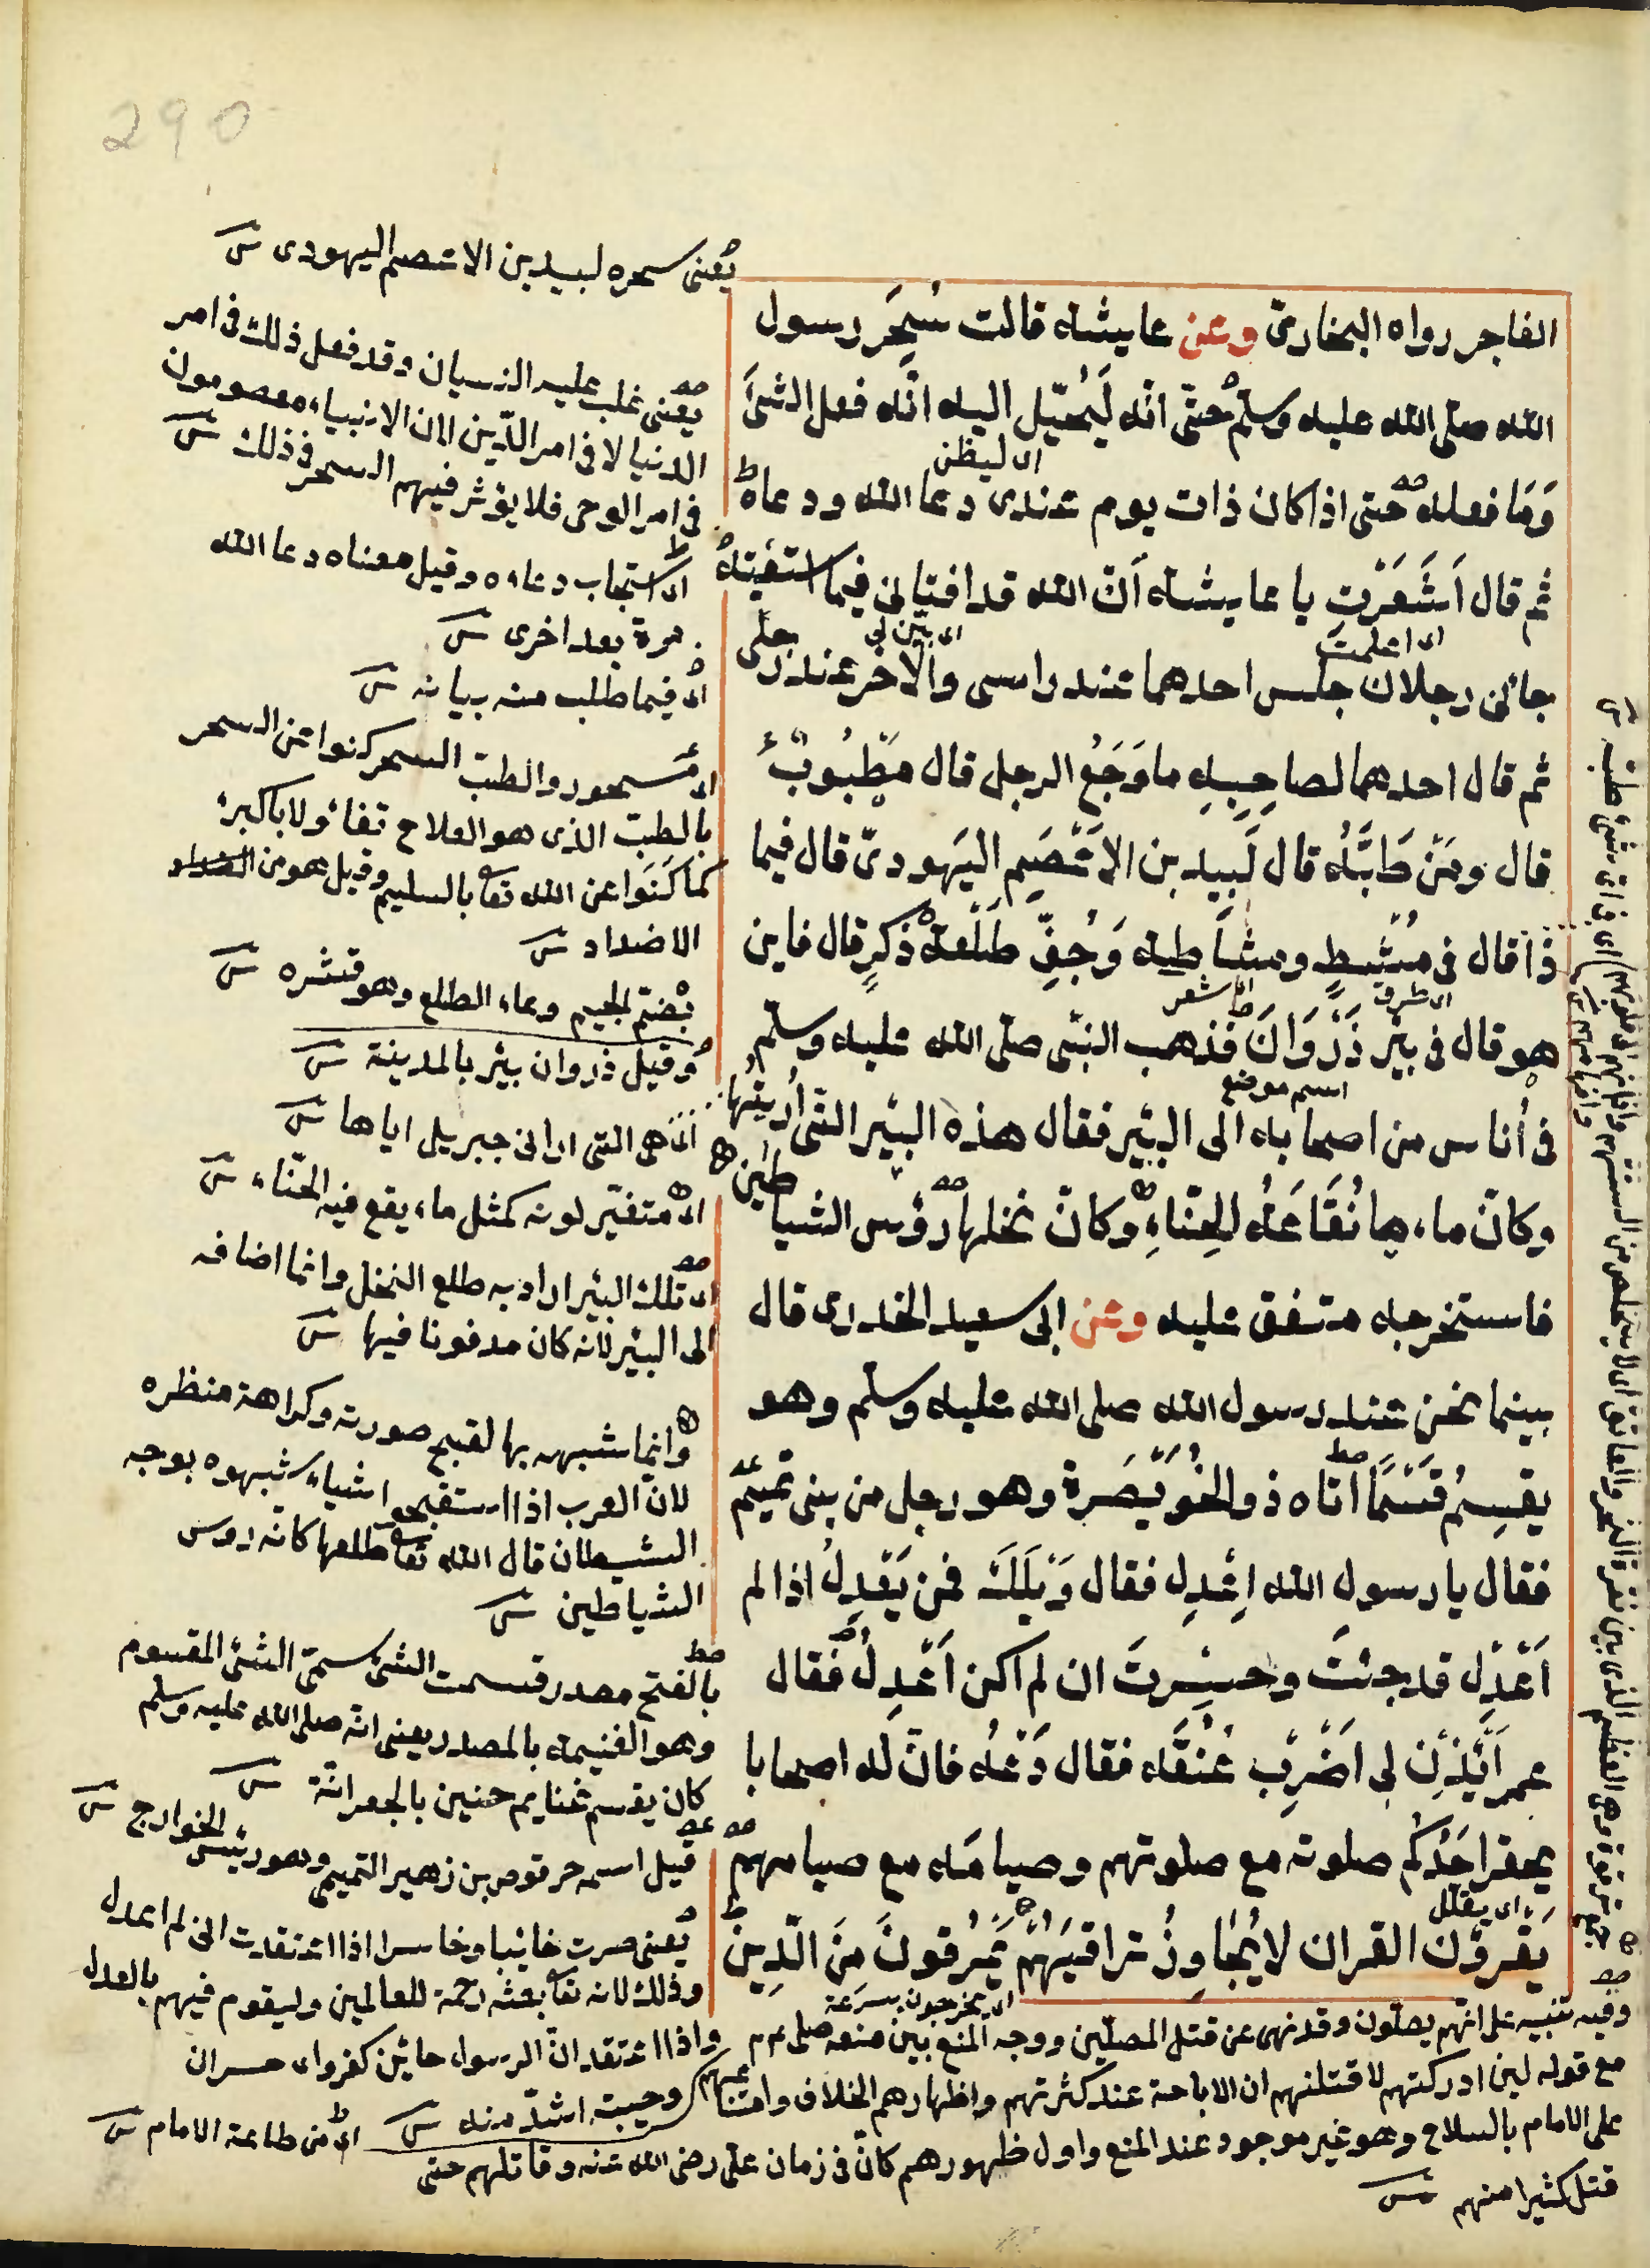 290
الفاجر رواه البخاريّ وعن عايشة قالت سُحِرَ رسول
الله صلى الله عليه وسلم حتّى انّه لَيُخَيّل اليه انّه فعل الشئَ
اى ليظن
وَمَا فعله حتى اذا كان ذات يوم عندى دعا الله ودعاه
ثم قال اَشَعَرْتِ يا عايشة اَنّ الله قد افتانى فيما استفتيتُه
اى اعلمت
اى بيّن لى
جائنى رجلان جلس احدهما عند راسى والآخر عند رجلى
ثم قال احدهما لصاحِبِهِ ما وَجَعُ الرجل قال مَطْبُوبٌ
قال ومَنْ طَبَّهُ قال لَبِيد بن الاَعْصَمِ اليَهودىّ قال فيما
ذا قال فى مُشْطٍ ومشاطة وَجُفِّ طَلْعَةِ ذَكَرٍ قال فاين
اى ظرف
اى شعر
هو قال فى بِئرِ ذَرْوَانَ فذهب النبّى صلى الله عليه وسلم
اسم موضع
فى أناس من اصحابه الى البئِر فقال هذه البئر التّى اُرِيتُها
وكانّ ماءها نُقَاعَةُ الحِنّاءِ وكانّ نخلها رؤس الشياطين
فاستخرجه متفق عليه وعن ابى سعيد الخدرى قال
بينما نحن عند رسول الله صلى الله عليه وسلم وهو
يقسِمُ قَسْمًا اتاه ذو الخُوَيْصَرة وهو رجل من بنى تميم
فقال يا رسول الله اِعْدِل فقال وَيْلَكَ فمن يَعْدِلُ اذا لم
اَعْدِل قد خبتَ وخسِرتَ ان لم اكن اَعْدِلُ فقال
عمر اَئْذِن لى اَضْرِب عُنُقَه فقال دَعْهُ فانّ له اصحابا
يحقر احَدُكم صلوته مع صلوتهم وصيامَه مع صيامهم
اى يقلل
يَقرؤن القران لا يُجاوِزُ تراقيَهُمْ يَمْرُقونَ مِنَ الّدِينِ
اى يخرجون بسرعة
يعنى سحره لبيد بن الاعصم اليهودى
يعنى غلب عليه النسيان وقد فعل ذلك فى امر
الدنيا لا فى امر الدّين لان الانبياء معصومون
فى امر الوحى فلا يؤثر فيهم السحر فى ذلك
اى استجاب دعاءه وقيل معناه دعا الله
مرة بعد اخرى
اى فيما طلب منه بيانه
اى مسحور والطبّ السحر كنوا عن السحر
بالطبّ الذى هو العلاج تفاؤلا بالبرء
كما كَنَوا عن اللديغ بالسليم وقيل هو من
الاضداد
بضمّ الجيم وعاء الطلع وهو قشره
وقيل ذروان بئر بالمدينة
اى هى التى ارانى جبريل اياها
اى متغيّر لونه كمثل ماء يقع فيه الحنّاء
اى تلك البئر اراد به طلع النخل وانما اضافه
الى البئر لانه كان مدفونا فيها
وانما شبهه بها لقبح صورته وكراهة منظره
لانّ العرب اذا استقبحوا اشياء شبهوه بوجه
الشيطان قال الله تعا طلعها كانّه رؤس
الشياطين
بالفتح مصدر قسمت الشئ سمّى الشئ المقسوم
وهو الغنيمة بالمصدر يعنى انّه صلى الله عليه وسلم
كان يقسم غنايم حنين بالجعرانّة
قيل اسمه حرقوص بن زهير التميمى وهو رئيس الخوارج
يعنى صرت خائبا وخاسرا اذا اعتقدت انى لم اعدل
وذلك لانه تعا بعثه رحمة للعالمين وليقوم فيهم بالعدل
واذا اعتقد انّ الرسول خائن كفر واى خسران
وخيبة اشدّ منه
اى من طاعة الامام
جمع ترقوة وهى العظم الذى بين نقرة النحر والعاتق
وفيه تنبيه على انّهم يصلّون وقد نهى عن قتل المصلّين ووجه المنع بين منعه صلى عم
مع قوله لئن ادركتهم لاقتلنهم ان الاباحة عند كثرتهم واظهارهم الخلاف وامتناعهم
على الامام بالسلاح وهو غير موجود عند المنع واول ظهورهم كانّ فى زمان علىّ رضى الله عنه وقاتلهم حتى
قتل كثيرا منهم